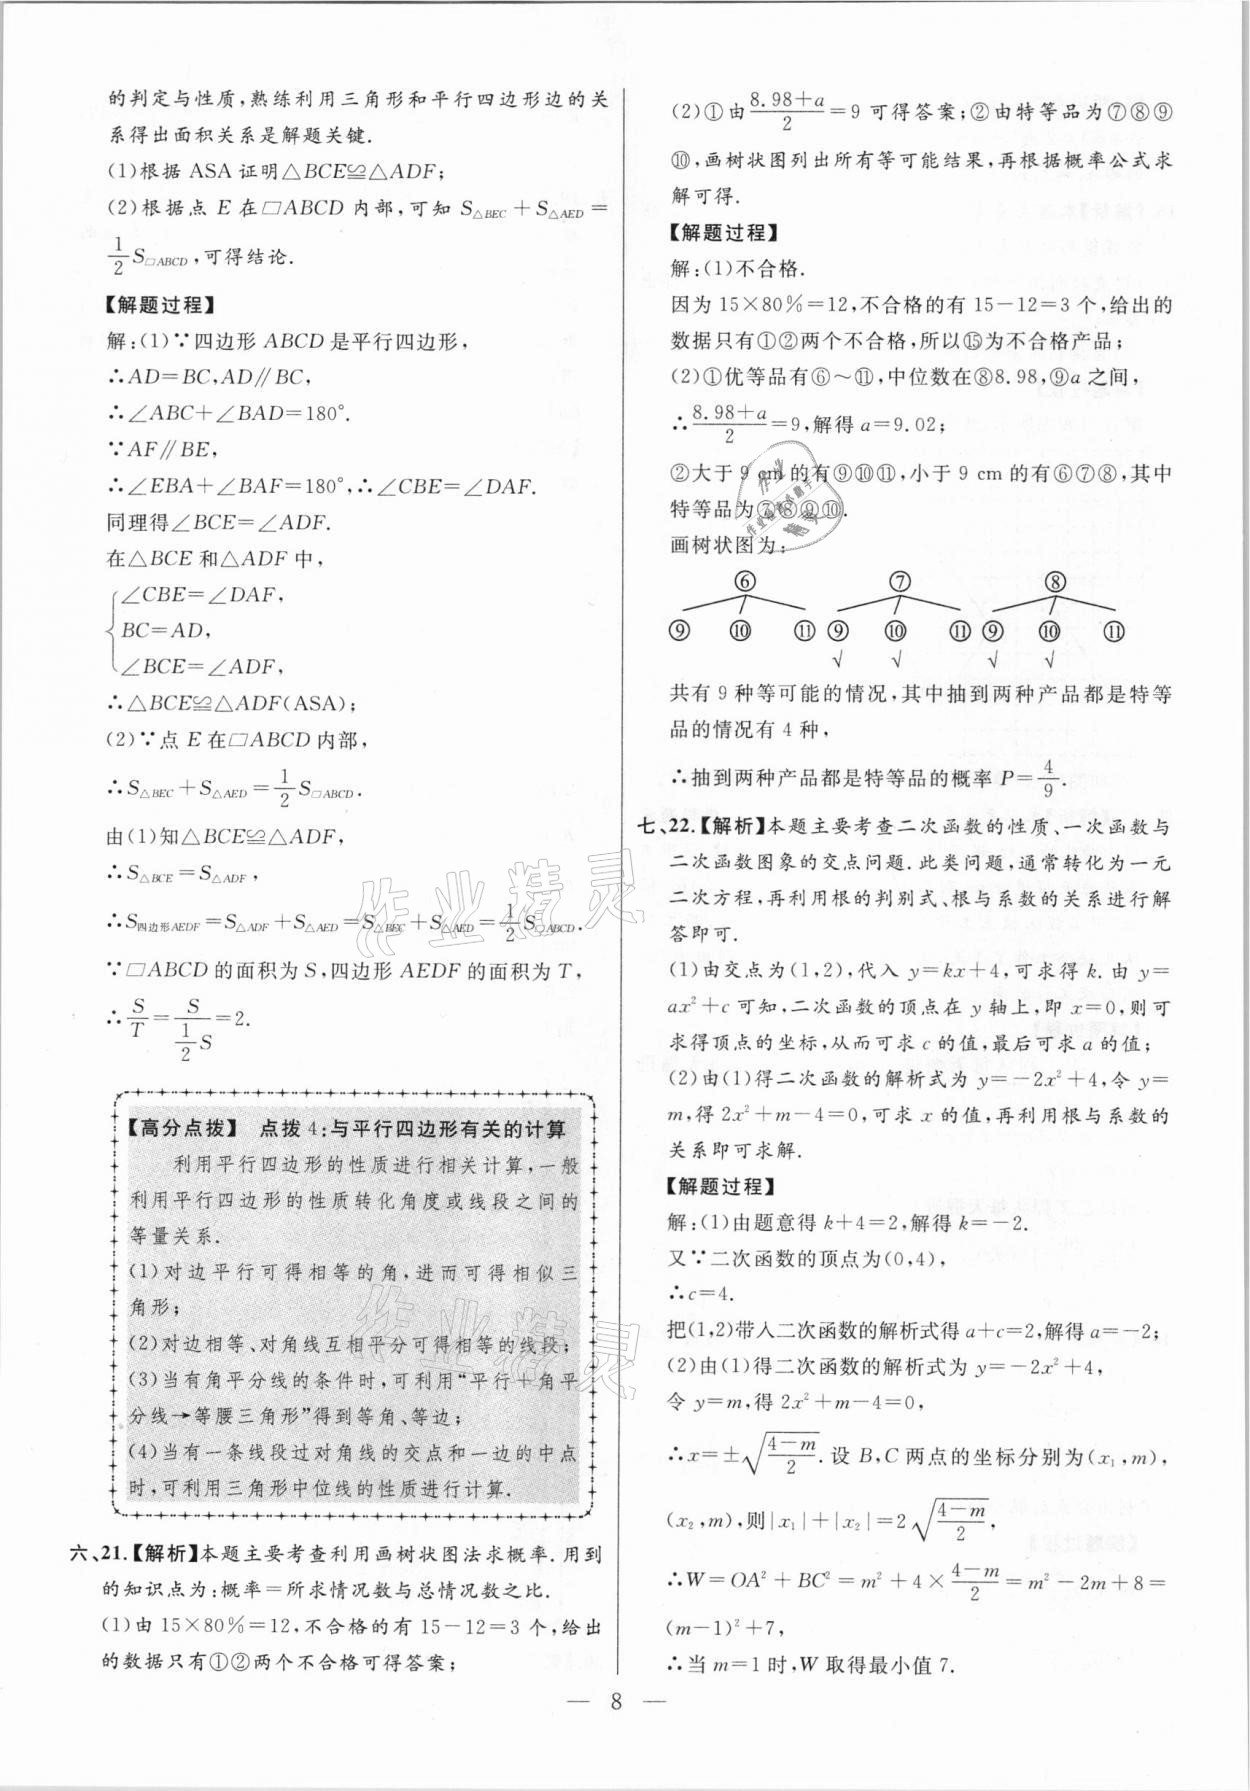 的判定与性质,熟练利用三角形和平行四边形边的关
系得出面积关系是解题关键.
(1)根据 ASA 证明△BCE≌△ADF;
(2)根据点 E 在▱ABCD 内部,可知 S△BEC+S△AED=
1/2 S▱ABCD,可得结论.
【解题过程】
解:(1)∵四边形 ABCD 是平行四边形,
∴AD=BC,AD∥BC,
∴∠ABC+∠BAD=180°.
∵AF∥BE,
∴∠EBA+∠BAF=180°,∴∠CBE=∠DAF.
同理得∠BCE=∠ADF.
在△BCE 和△ADF 中,
∠CBE=∠DAF,
BC=AD,
∠BCE=∠ADF,
∴△BCE≌△ADF(ASA);
(2)∵点 E 在▱ABCD 内部,
∴S△BEC+S△AED=1/2 S▱ABCD.
由(1)知△BCE≌△ADF,
∴S△BCE=S△ADF,
∴S四边形AEDF=S△ADF+S△AED=S△BEC+S△AED=1/2 S▱ABCD.
∵▱ABCD 的面积为 S,四边形 AEDF 的面积为 T,
∴S/T=S/(1/2 S)=2.
【高分点拨】 点拨 4:与平行四边形有关的计算
利用平行四边形的性质进行相关计算,一般
利用平行四边形的性质转化角度或线段之间的
等量关系.
(1)对边平行可得相等的角,进而可得相似三
角形;
(2)对边相等、对角线互相平分可得相等的线段;
(3)当有角平分线的条件时,可利用“平行+角平
分线→等腰三角形”得到等角、等边;
(4)当有一条线段过对角线的交点和一边的中点
时,可利用三角形中位线的性质进行计算.
六、21.【解析】本题主要考查利用画树状图法求概率.用到
的知识点为:概率=所求情况数与总情况数之比.
(1)由 15×80%=12,不合格的有 15-12=3 个,给出
的数据只有①②两个不合格可得答案;
(2)①由(8.98+a)/2=9 可得答案;②由特等品为⑦⑧⑨
⑩,画树状图列出所有等可能结果,再根据概率公式求
解可得.
【解题过程】
解:(1)不合格.
因为 15×80%=12,不合格的有 15-12=3 个,给出的
数据只有①②两个不合格,所以⑮为不合格产品;
(2)①优等品有⑥~⑪,中位数在⑧8.98,⑨a 之间,
∴(8.98+a)/2=9,解得 a=9.02;
②大于 9 cm 的有⑨⑩⑪,小于 9 cm 的有⑥⑦⑧,其中
特等品为⑦⑧⑨⑩.
画树状图为:
⑥ ⑦ ⑧
⑨ ⑩ ⑪ ⑨ ⑩ ⑪ ⑨ ⑩ ⑪
√ √ √ √
共有 9 种等可能的情况,其中抽到两种产品都是特等
品的情况有 4 种,
∴抽到两种产品都是特等品的概率 P=4/9.
七、22.【解析】本题主要考查二次函数的性质、一次函数与
二次函数图象的交点问题.此类问题,通常转化为一元
二次方程,再利用根的判别式、根与系数的关系进行解
答即可.
(1)由交点为(1,2),代入 y=kx+4,可求得 k.由 y=
ax²+c 可知,二次函数的顶点在 y 轴上,即 x=0,则可
求得顶点的坐标,从而可求 c 的值,最后可求 a 的值;
(2)由(1)得二次函数的解析式为 y=-2x²+4,令 y=
m,得 2x²+m-4=0,可求 x 的值,再利用根与系数的
关系即可求解.
【解题过程】
解:(1)由题意得 k+4=2,解得 k=-2.
又∵二次函数的顶点为(0,4),
∴c=4.
把(1,2)带入二次函数的解析式得 a+c=2,解得 a=-2;
(2)由(1)得二次函数的解析式为 y=-2x²+4,
令 y=m,得 2x²+m-4=0,
∴x=±√((4-m)/2).设 B,C 两点的坐标分别为(x₁,m),
(x₂,m),则|x₁|+|x₂|=2√((4-m)/2),
∴W=OA²+BC²=m²+4×(4-m)/2=m²-2m+8=
(m-1)²+7,
∴当 m=1 时,W 取得最小值 7.
— 8 —
作业精灵
作业精灵